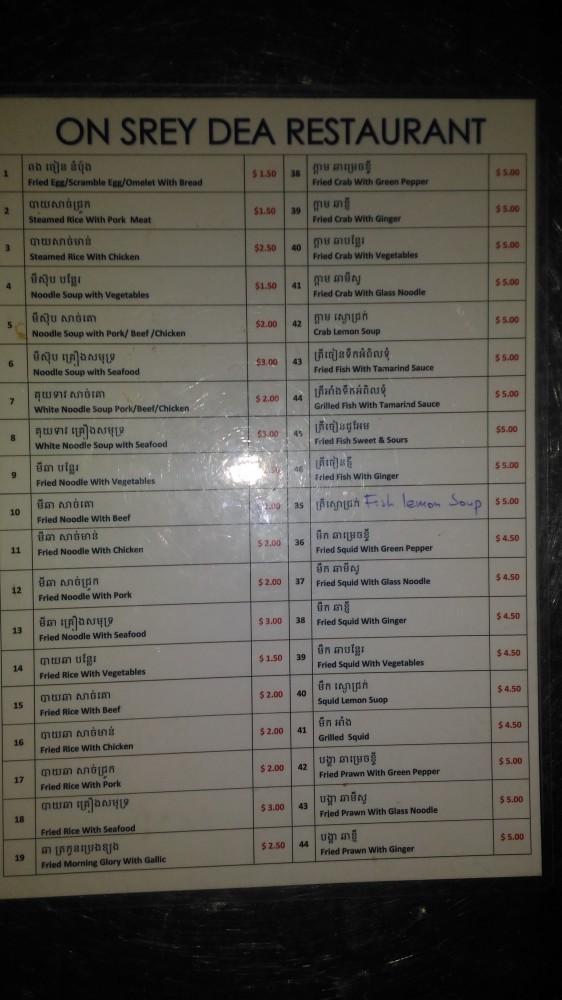 ON SREY DEA RESTAURANT
1 ពង ចៀន នំប៉ុង $ 1.50
Fried Egg/Scramble Egg/Omelet With Bread
2 បាយសាច់ជ្រូក $1.50
Steamed Rice With Pork Meat
3 បាយសាច់មាន់ $2.50
Steamed Rice With Chicken
4 មីស៊ុប បន្លែរ $1.50
Noodle Soup with Vegetables
5 មីស៊ុប សាច់គោ $2.00
Noodle Soup with Pork/ Beef /Chicken
6 មីស៊ុប គ្រឿងសមុទ្រ $3.00
Noodle Soup with Seafood
7 គុយទាវ សាច់គោ $ 2.00
White Noodle Soup Pork/Beef/Chicken
8 គុយទាវ គ្រឿងសមុទ្រ $3.00
White Noodle Soup with Seafood
9 មីឆា បន្លែរ
Fried Noodle With Vegetables
10 មីឆា សាច់គោ 2.00
Fried Noodle With Beef
11 មីឆា សាច់មាន់ $ 2.00
Fried Noodle With Chicken
12 មីឆា សាច់ជ្រូក $ 2.00
Fried Noodle With Pork
13 មីឆា គ្រឿងសមុទ្រ $ 3.00
Fried Noodle With Seafood
14 បាយឆា បន្លែរ $ 1.50
Fried Rice With Vegetables
15 បាយឆា សាច់គោ $ 2.00
Fried Rice With Beef
16 បាយឆា សាច់មាន់ $ 2.00
Fried Rice With Chicken
17 បាយឆា សាច់ជ្រូក $ 2.00
Fried Rice With Pork
18 បាយឆា គ្រឿងសមុទ្រ $ 3.00
Fried Rice With Seafood
19 ឆា ត្រកួនប្រេងខ្យង $ 2.50
Fried Morning Glory With Gallic
38 ក្តាម ឆាម្រេចខ្ចី $ 5.00
Fried Crab With Green Pepper
39 ក្តាម ឆាខ្ញី $ 5.00
Fried Crab With Ginger
40 ក្តាម ឆាបន្លែរ $ 5.00
Fried Crab With Vegetables
41 ក្តាម ឆាមីសួ $ 5.00
Fried Crab With Glass Noodle
42 ក្តាម ស្ងោជ្រក់ $ 5.00
Crab Lemon Soup
43 ត្រីចៀនទឹកអំពិលទុំ $ 5.00
Fried Fish With Tamarind Sauce
44 ត្រីអាំងទឹកអំពិលទុំ $ 5.00
Grilled Fish With Tamarind Sauce
45 ត្រីចៀនជូរអែម $5.00
Fried Fish Sweet & Sours
46 ត្រីចៀនខ្ញី $ 5.00
Fried Fish With Ginger
35 ត្រីស្ងោជ្រក់ Fish lemon Soup $ 5.00
36 មឹក ឆាម្រេចខ្ចី $ 4.50
Fried Squid With Green Pepper
37 មឹក ឆាមីសួ $ 4.50
Fried Squid With Glass Noodle
38 មឹក ឆាខ្ញី $ 4.50
Fried Squid With Ginger
39 មឹក ឆាបន្លែរ $ 4.50
Fried Squid With Vegetables
40 មឹក ស្ងោជ្រក់ $ 4.50
Squid Lemon Suop
41 មឹក អាំង $ 4.50
Grilled Squid
42 បង្គា ឆាម្រេចខ្ចី $ 5.00
Fried Prawn With Green Pepper
43 បង្គា ឆាមីសួ $ 5.00
Fried Prawn With Glass Noodle
44 បង្គា ឆាខ្ញី $ 5.00
Fried Prawn With Ginger